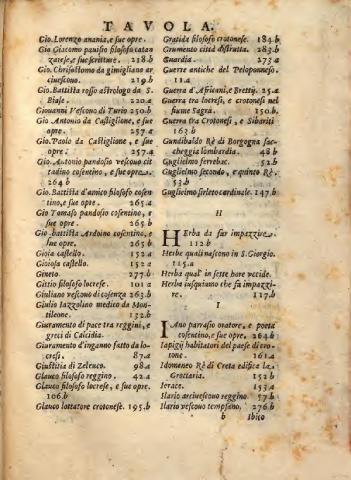 TAVOLA.
Gio. Lorenzo anania, e sue opre.
Gio Giacomo pausiro filosofo catan
zarese, e sue scritture. 218.b
Gio. Chrisostomo da gimigliano ar
civescouo. 219.b
Gio. Battista rosso astrologo da S.
Biase. 220.a
Giouanni Vescouo di Turio 250.b
Gio Antonio da Castiglione, e sue
opre. 257.a
Gio. Paolo da Castiglione, e sue
opre. 257.a
Gio. Antonio pandosio vescouo cit
tadino cosentino, e sue opre.
264.b
Gio. Battista d'amico filosofo cosen
tino, e sue opre. 265.a
Gio Tomaso pandosio cosentino, e
sue opre. 265.b
Gio. battista Ardoino cosentino, e
sue opre. 265.b
Gioia castello. 152.a
Gioiosa castello. 152.a
Gineto. 277.b
Gittio filosofo locrese. 101.a
Giuliano vescouo di cosenza 263.b
Giulio Iazzolino medico da Mon-
tileone. 132.b
Giuramento di pace tra reggini, e
greci di Calcidia.
Giuramento d'inganno fatto da lo-
cresi. 87.a
Giustitia di Zeleuco. 98.a
Glauco filosofo reggino. 42.a
Glauco filosofo locrese, e sue opre.
106.b
Glauco lottatore crotonese. 195.b
Gratide filosofo crotonese. 184.b
Grumento città distrutta. 283.b
Guardia. 273.a
Guerre antiche del Peloponneso.
11.a
Guerra d'Africani, e Brettij. 25.a
Guerra tra locresi, e crotonesi nel
fiume Sagra. 150.b.
Guerra tra Crotonesi, e Sibariti
162.b
Gundibaldo Rè di Borgogna sac-
cheggia lombardia. 48.b
Guglielmo ferrebac. 52.b
Guglielmo secondo, e quinto Rè.
53.b
Guglielmo sirleto cardinale. 147.b
H
Herba da far impazzire.
112.b
Herbe quali nascono in S. Giorgio.
125.a
Herba qual' in sette hore vccide.
Herba iusquiamo che fà impazzi-
re. 117.b
I
IAno parrasio oratore, e poeta
cosentino, e sue opre. 264.b
Iapigij habitatori del paese di cro-
tone. 161.a
Idomeneo Rè di Creta edifica la
Grottaria. 152.b
Ierace. 153.a
Ilario arciuescouo reggino. 57.b
Ilario vescouo temesano. 276.b
b Ibico